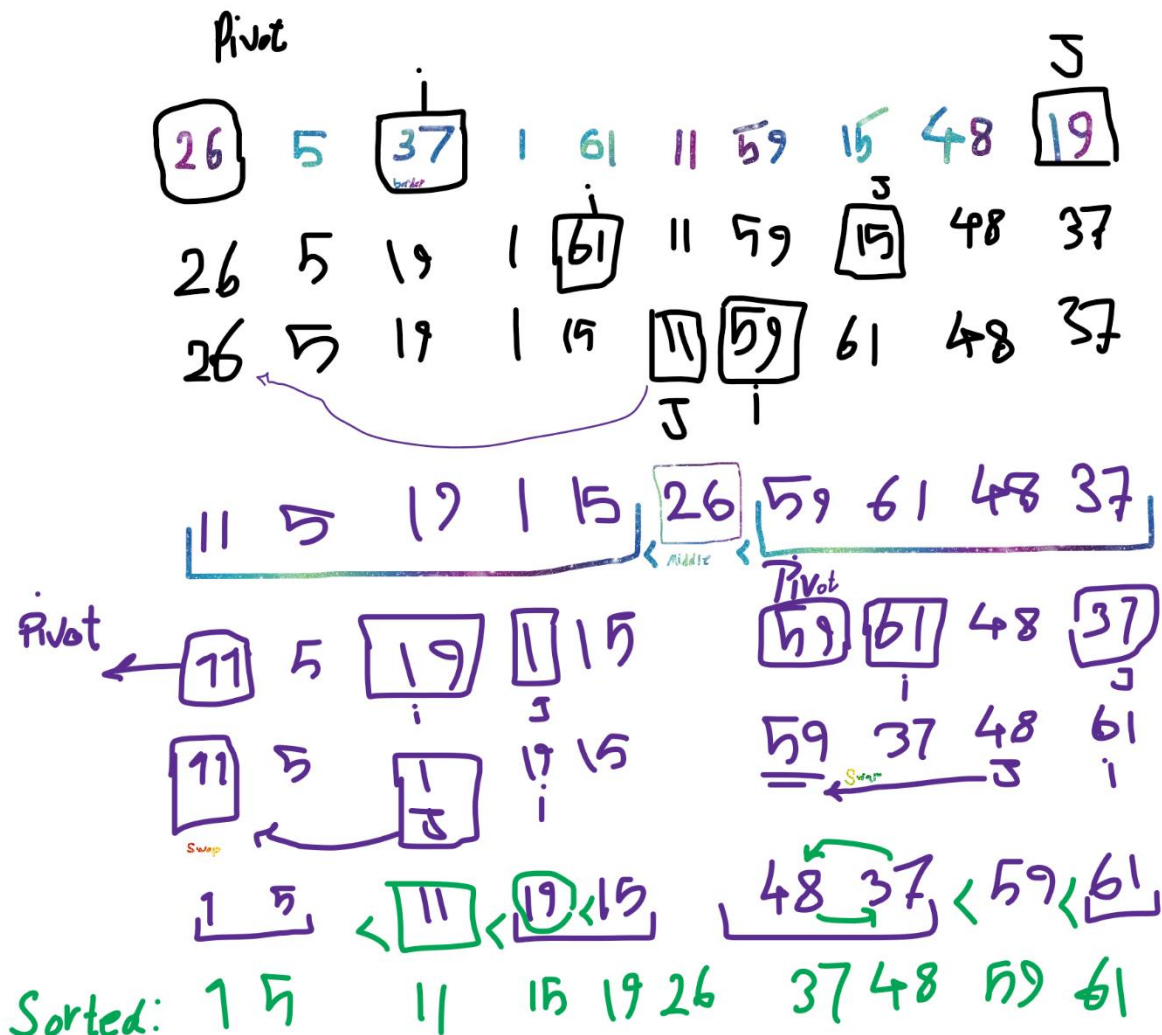 Pivot
i J
26 5 37 1 61 11 59 15 48 19
border
i J
26 5 19 1 61 11 59 15 48 37
26 5 19 1 15 11 59 61 48 37
J i
11 5 19 1 15 26 59 61 48 37
< Middle <
Pivot Pivot
11 5 19 1 15 59 61 48 37
i J i J
11 5 1 19 15 59 37 48 61
J i Swap J i
Swap
1 5 < 11 < 19 < 15 48 37 < 59 < 61
Sorted: 1 5 11 15 19 26 37 48 59 61